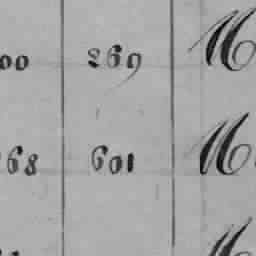 00 269 M
68 601 M